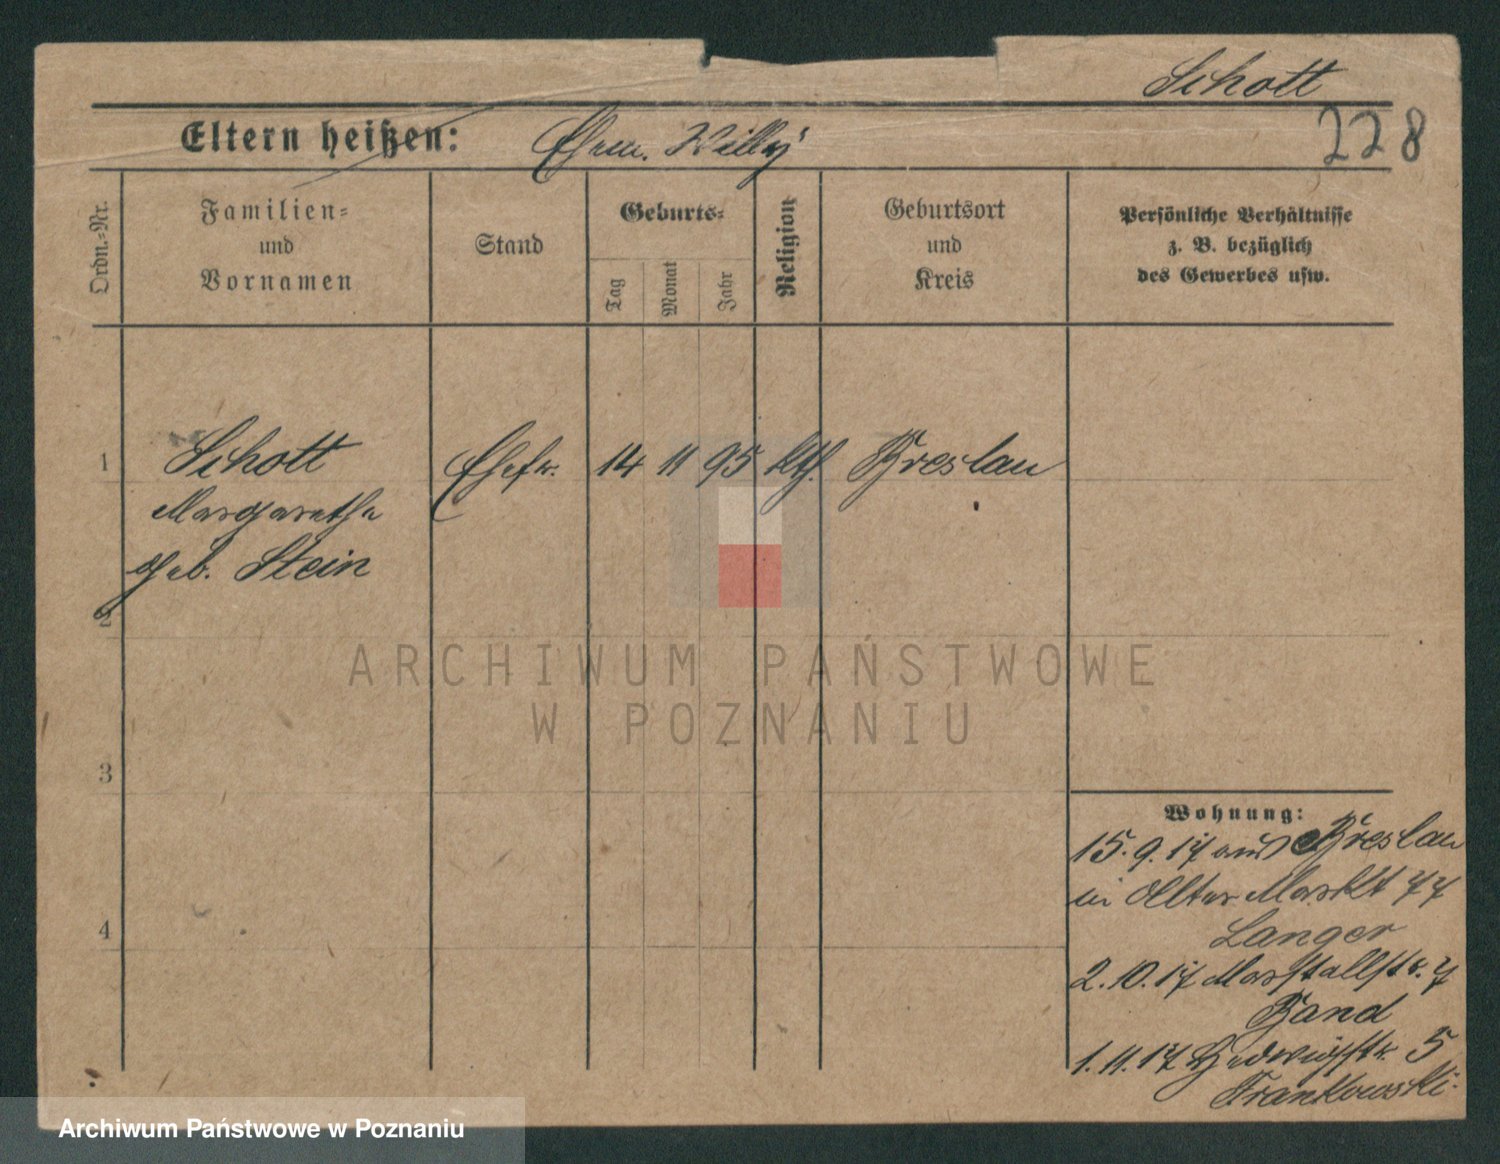 Schott
228
Eltern heißen: Ehem. Willy
Ordn.-Nr.
Familien-
und
Vornamen
Stand
Geburts-
Tag
Monat
Jahr
Religion
Geburtsort
und
Kreis
Persönliche Verhältnisse
z. B. bezüglich
des Gewerbes usw.
1 Schott Ehefr. 14 11 95 kth. Breslau
Margarethe
geb. Stein
2
3
4
ARCHIWUM PAŃSTWOWE
W POZNANIU
Wohnung:
15.9.17 aus Breslau
in Alter Markt 77
Langer
2.10.17 Marstallstr. 7
Band
1.11.17 Hedwigstr. 5
Frankowski
Archiwum Państwowe w Poznaniu